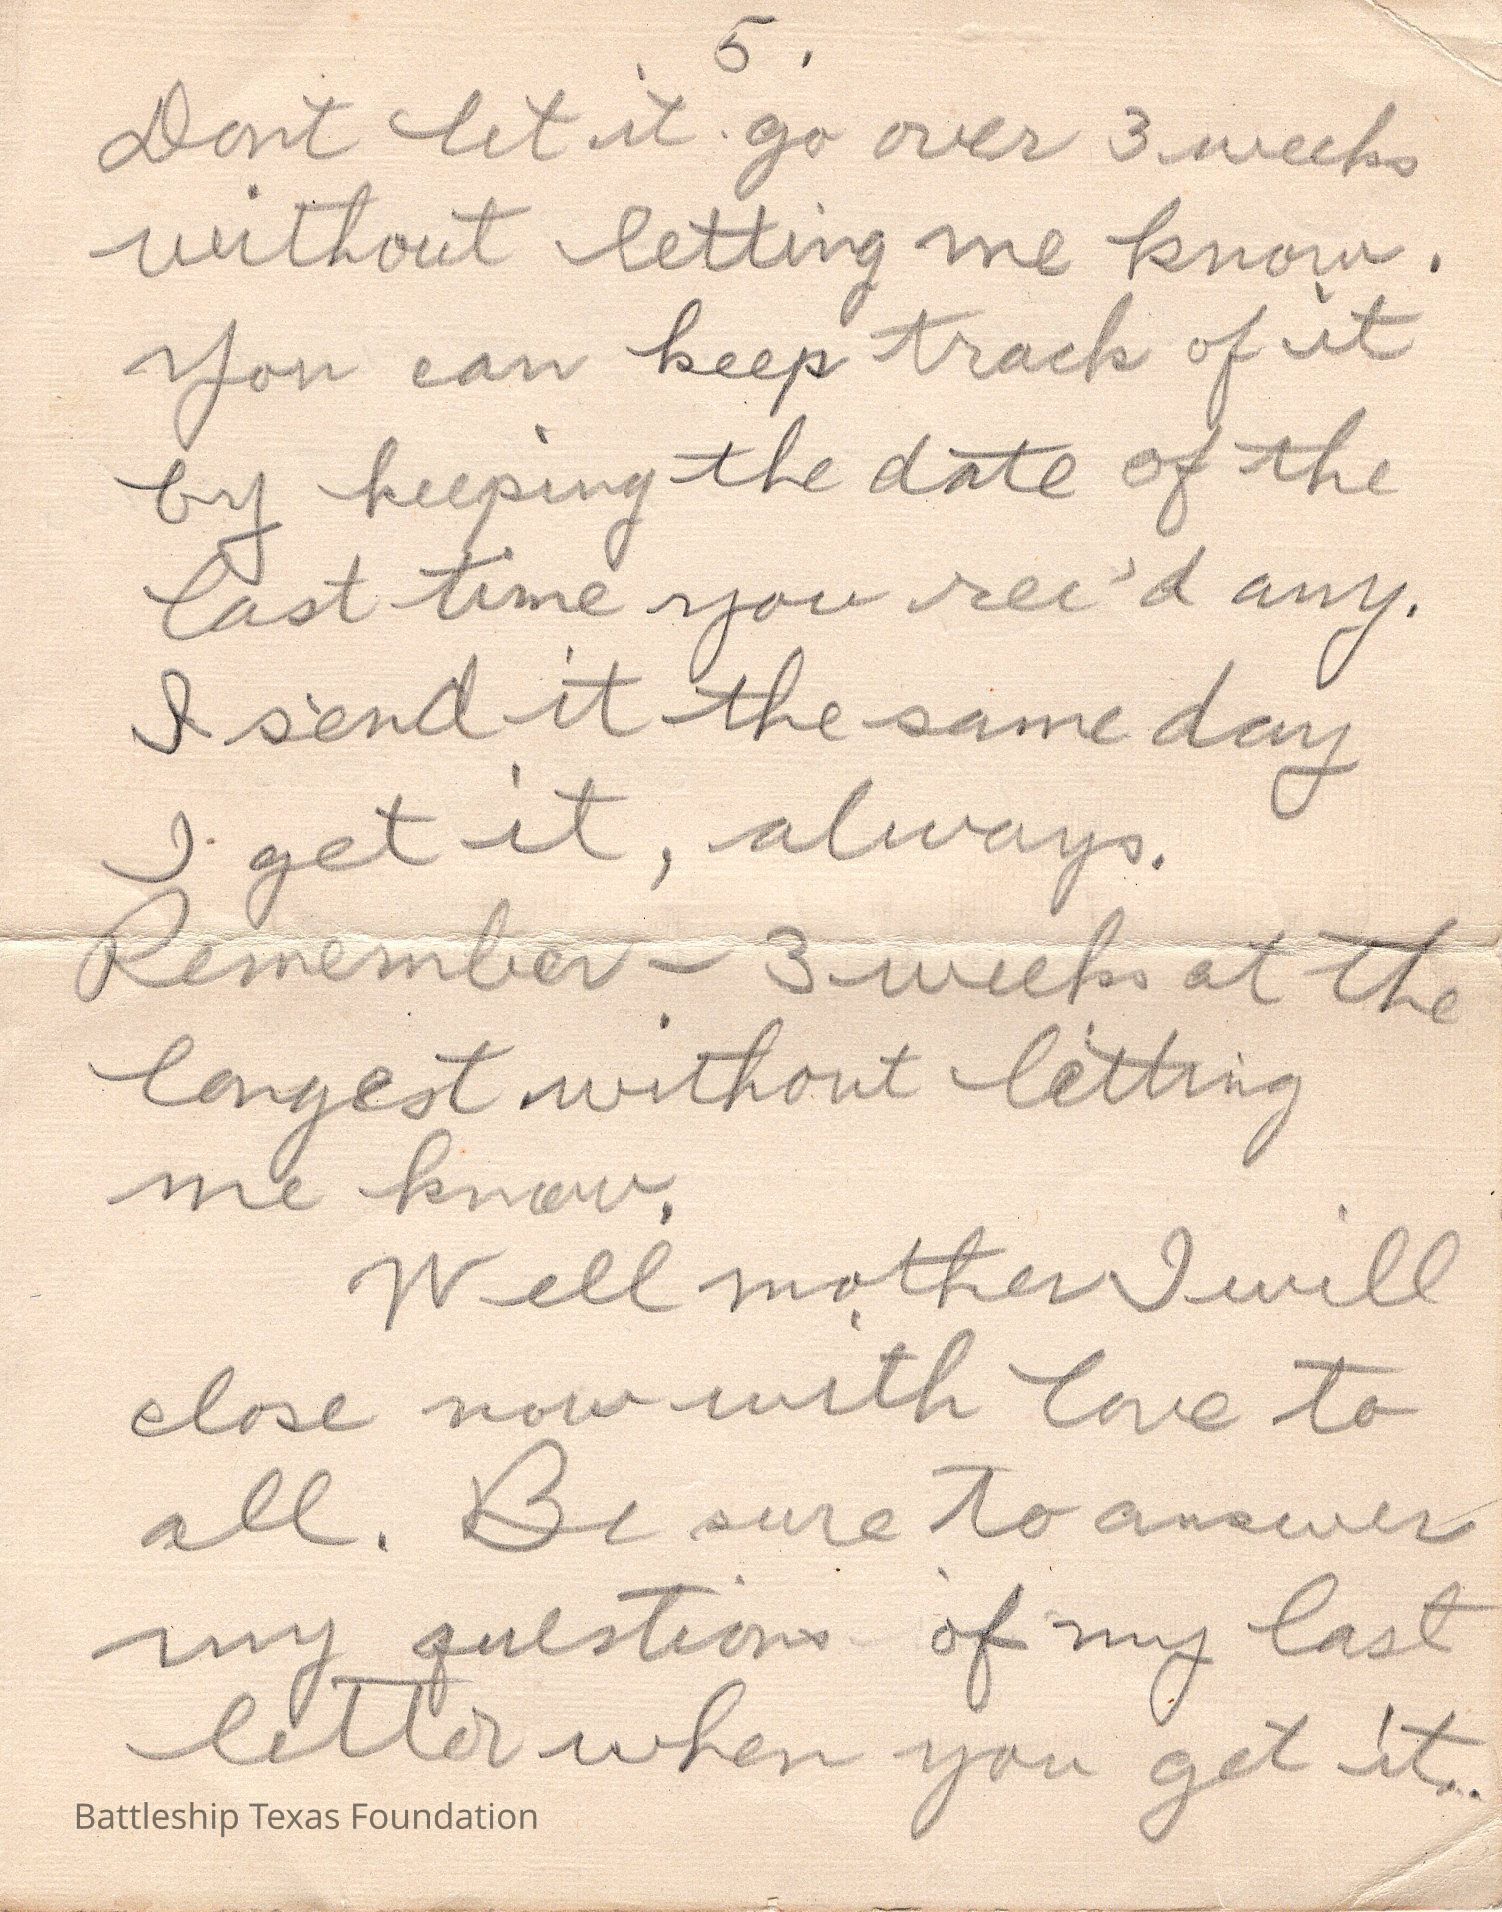 5.
Dont let it go over 3 weeks
without letting me know.
You can keep track of it
by keeping the date of the
last time you rec'd any.
I send it the same day
I get it, always.
Remember - 3 weeks at the
longest without letting
me know.
Well mother I will
close now with love to
all. Be sure to answer
my questions of my last
letter when you get it..
Battleship Texas Foundation